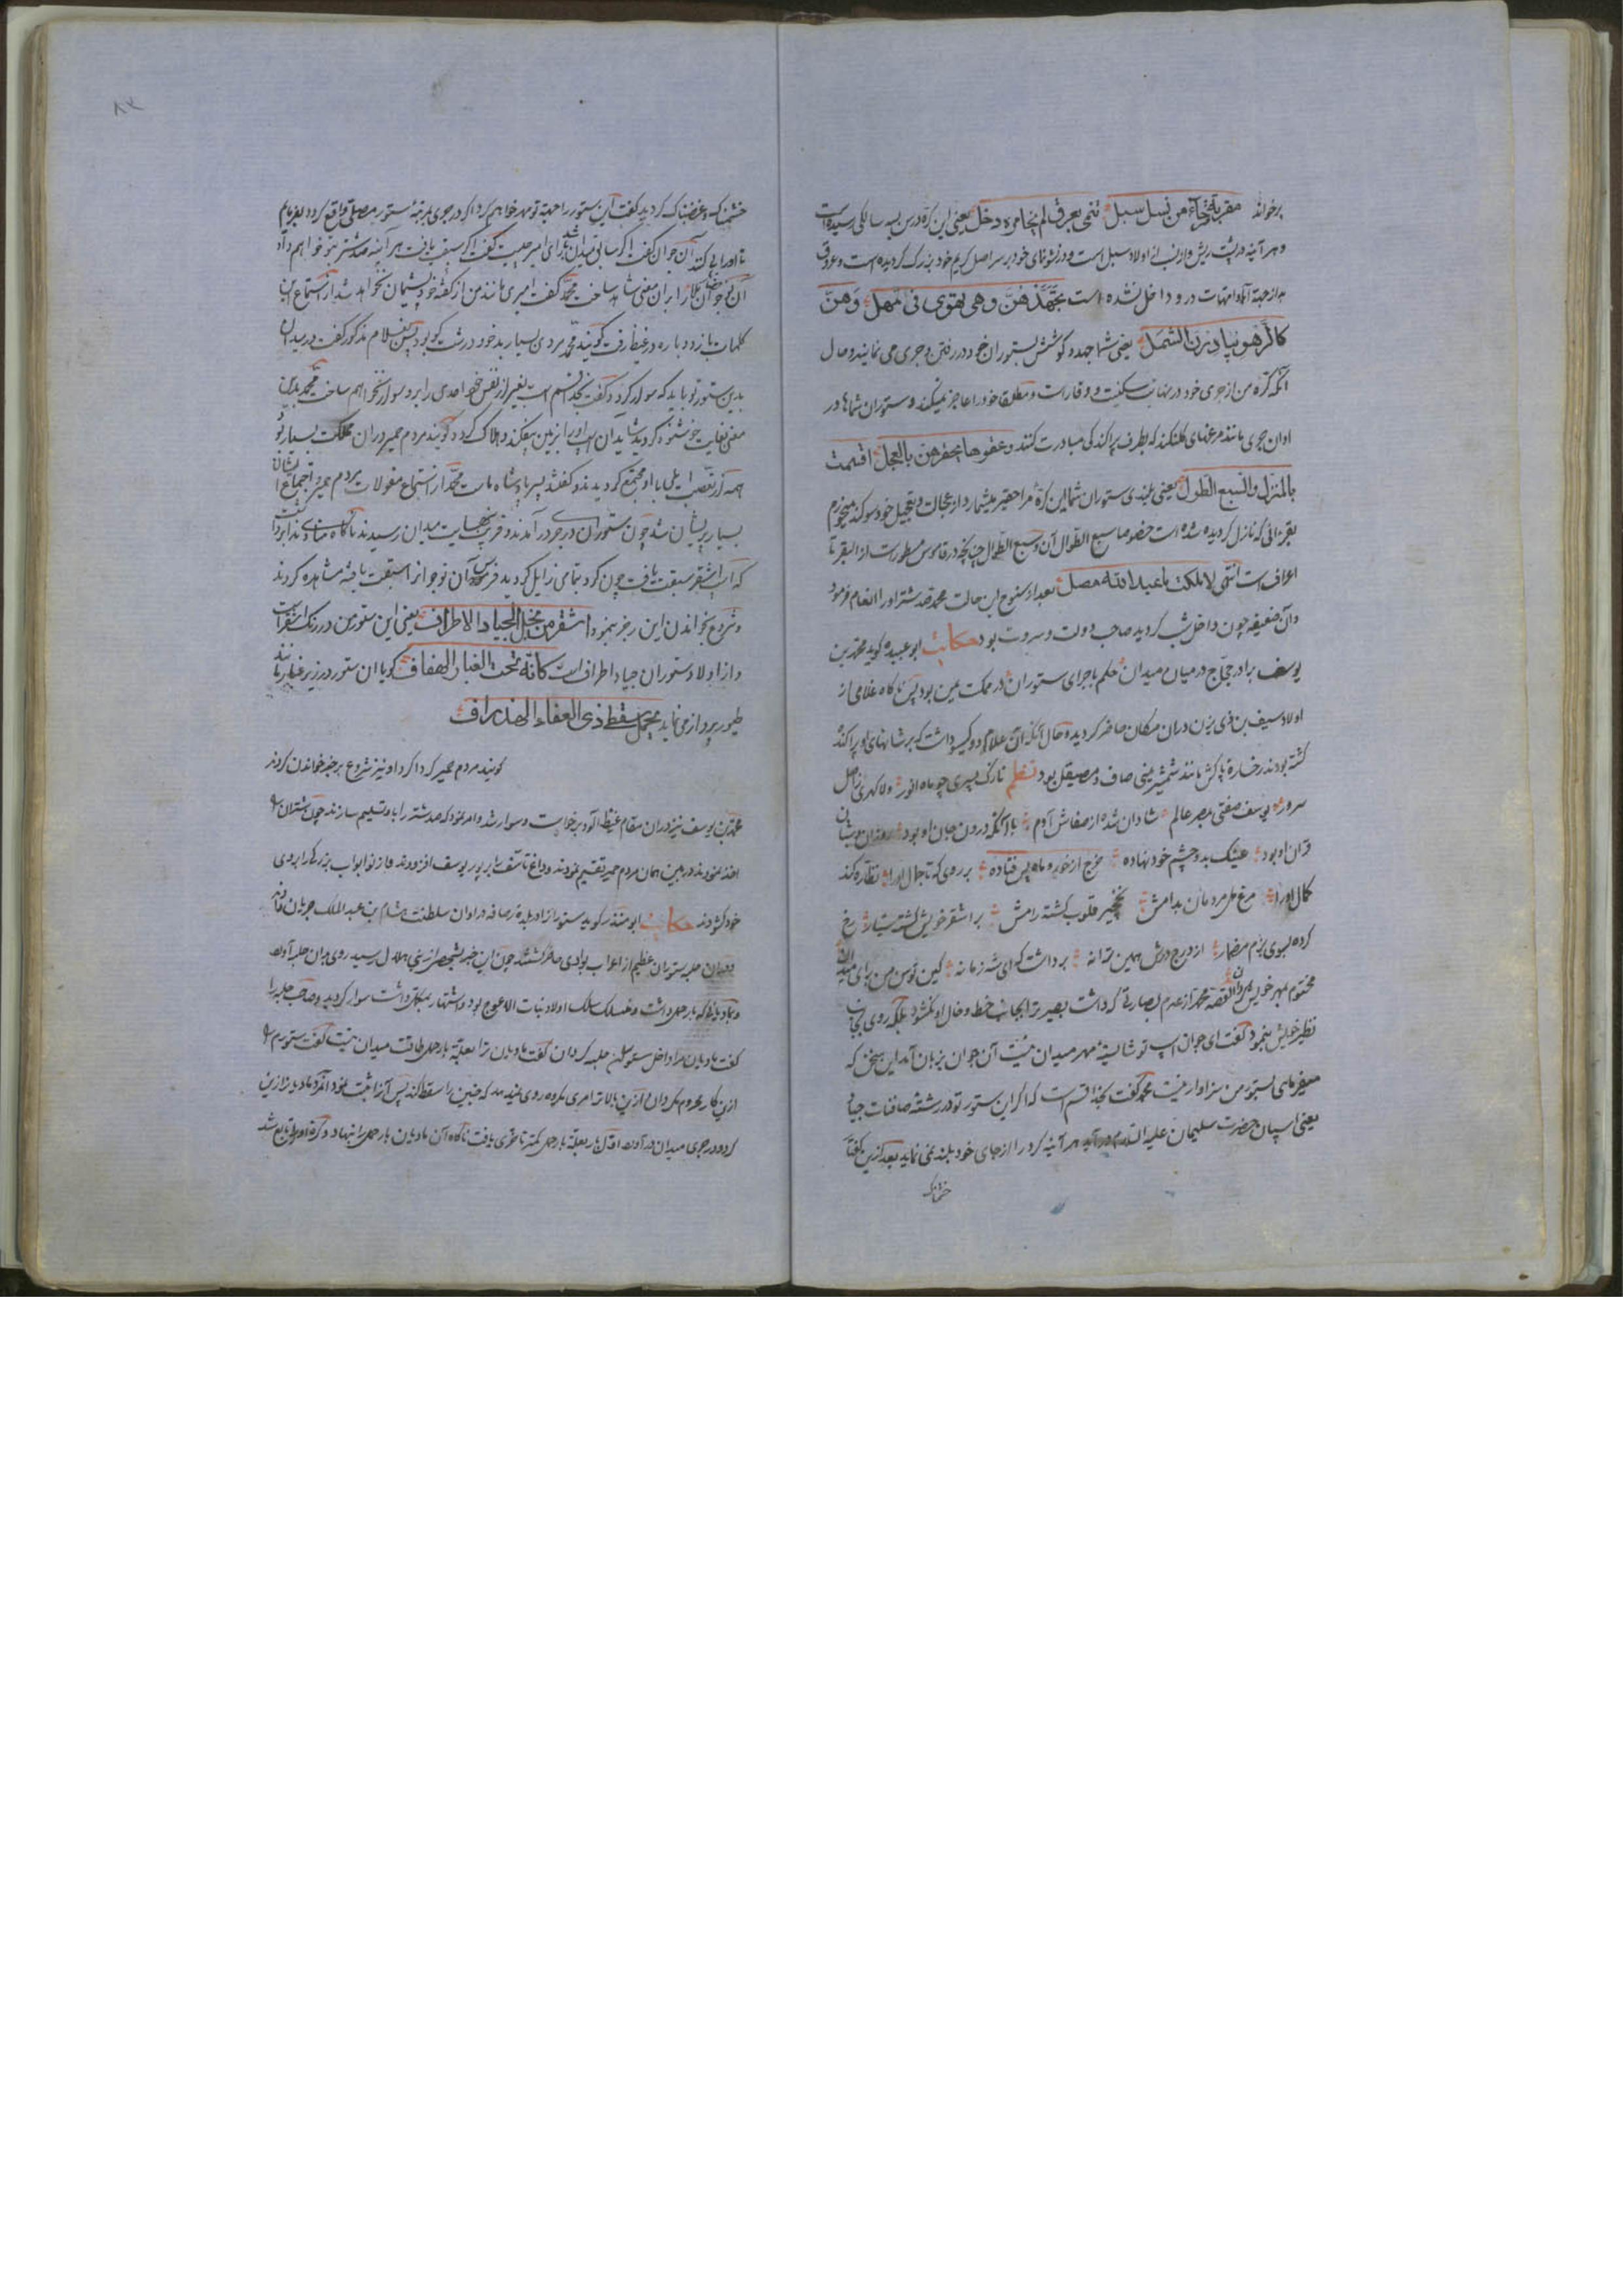 برخواند مقربة جاءت من نسل سبل تنمی بعرق لم یخامره دخل یعنی این کره در سن یک سالکی رسیده است
و هر آینه در پشت ریش و او نسب از اولاد سبل است و در نشو نمای خود بر سر اصل کریم خود بزرک کردیده است و عروق
بد از جهة آباء و امهات در و داخل نشده است بجهدهن و هی تهوی فی المهل وهن
کالرهو یبادرن الشمل یعنی شما جهد و کوشش ستوران خود در رفتن و جری می نمایند و حال
آنکه کره من از جری خود در نهایت سکینت و وقار است و مطلقا خود را عاجز نمیکند و ستوران شما ها در
اوان جری مانند مرغهای کلنکند که بطرف پراکندکی مبادرت کنند و عقوها یحقرهن بالعجل اقسمت
بالمنزل والسبع الطول یعنی بلندی ستوران شما این کره مرا حقیر میشمارد از عجالت و تعجیل خود سوکند میخورم
بقرانی که نازل کردیده شده است خصوصا سبع الطوال آن و سبع الطوال چنانچه در قاموس مسطور است از البقر تا
اعراف است انتهی لا ملکت یا عبد الله مصل بعد از سنوح این حالت محمد صد شتر او را انعام فرمود
و آن ضعیفه چون داخل شب کردید صاحب دولت و ثروت بود حکایت ابو عبیده کوید محمد بن
یوسف برادر حجاج در میان میدان حکم باجرای ستوران در مملکت یمن بود پس ناکاه غلامی از
اولاد سیف بن ذی یزن در ان مکان حاضر کردیده و حال آنکه آن غلام دو کیسو داشت که بر شانهای او پراکنده
کشته بودند رخساره پاکش مانند شمشیر یمنی صاف و صیقل بود نظم نازک پسری چو ماه انور ولا کهری ز اصل
سرور یوسف صفتی بمصر عالم شادان شده از صفاش آدم با آنکه درون جان او بود
قران او بود عینک بد و چشم خود نهاده چرخ از خور و ماه پس فتاده بر روی که تا جمال او را نظاره کند
کمال او را مرغ دل مردمان بدامش نخجیر قلوب کشته رامش بر اشقر خویش کشته سیار رخ
کرده بسوی بزم مضمار از درج درش همین ترانه برداشت که ای شه زمانه کین توسن من برای میدان
مختوم بمهر خویش کردان القصه محمد از عدم بصارتی که داشت بصیرت را بجانب خط و خال او نکشود بلکه روی بجانب
نظیر خویش بنمود کفت ای جوان اسب تو شایسته مهر میدان نیست آن جوان بزبان آمد این سخن که
میفرمای بستور من سزاوار نیست محمد کفت بخدا قسم است که اکر این ستور تو در رشته صافنات جیاد
یعنی اسپان حضرت سلیمان علیه السلام در آید هر آینه کرد را از جای خود بلند نمی نماید بعد ازین کفتار
خشمناک
۸۲
خشمناک و غضبناک کردید کفت این ستور را جهة تو مهر خواهم کرد اکر در جری بمرتبهٔ ستور مصلی واقع کردد بفرمایم
تا او را پی کنند آن جوان کفت اکر سابق میدان شد رای امیر چیست کفت اکر سبقت یافت هر آینه صد شتر بتو خواهم داد
آن نوجوان حضار را بر ان معنی شاهد ساخت محمد کفت امیری مانند من از کفته خود پشیمان نخواهد شد از استماع این
کلمات باز دوباره در غیظ رفت کویند محمد مردی بسیار بد خو و درشت کو بود پس غلام مذکور کفت در میدان
بدین ستور تو باید که سوار کردد کفت بخدا قسم است بغیر از نفس خود احدی را بر و سوار نخواهم ساخت محمد بدین
معنی بغایت خوشنود کردید شاید ان اسب او را بر زمین بیفکند و هلاک کردد کویند مردم حمیر در ان مملکت بسیار بود
همه از تعصب ایلی با او مجتمع کردیدند و کفتند پسر پادشاه ماست محمد از استماع مقولات مردم حمیر و اجتماع ایشان
بسیار پریشان شد چون ستوران در جری در آمدند و قریب نهایت میدان رسیدند ناکاه منادی ندا بر داشت
که اسب اشقر سبقت یافت چون کرد بتمامی زایل کردید فرس آن نوجوان را سبقت یافته مشاهده کردند
و شروع بخواندن این رجز بنمود اشقر من خیل الجیاد الاطراف یعنی این ستور من در رنک اشقر است
و از اولاد ستوران جیاد اطراف است کانه تحت الغبار الهفاف کویا ان ستور در زیر غبار مانند
طیور پرواز می نماید یحمل سقط ذی العفاء الهذراف
کویند مردم حمیر کردا کرد او نیز شروع برجز خواندن کردند
محمد بن یوسف نیز در ان مقام غیظ آلود برخواست و سوار شد و امر نمود که صد شتر را باو تسلیم سازند چون شتران را
اخذ نمودند در بین همان مردم حمیر تقسیم نمودند و داغ تاسف را بر پور یوسف افزودند و از نو ابواب بزرکی را بروی
خود کشودند حکایت ابو منذر کوید ستور از او بلده رصافه در اوان سلطنت هشام بن عبد الملک جریان یافتند
در ان حلبه ستوران عظیم از اعراب بوادی حاضر کشتند چون این خبر بشخصی از بنی هلال رسید روی در ان حلبه آورد
و مادیانی که بار حمل داشت و منسلک سلک اولاد بنات الاعوج بود و اشتهار نیکی داشت سوار کردید و صاحب حلبه را
کفت مادیان مرا داخل ستوران حلبه کردان کفت مادیان ترا بعلة بار حمل طاقت میدان نیست کفت ستورم را
ازین کار محروم مکردان ازین بالاتر امری مکروه روی نمیدهد که جنین را سقط کند پس آنرا ثبت نمود آنفرد مادیان را زین
کرد و در جری میدان در آورد اول بار بعلة بار حمل کمتر تاخری یافت ناکاه آن مادیان بار حمل را بنهاد و کره او را تابع شد